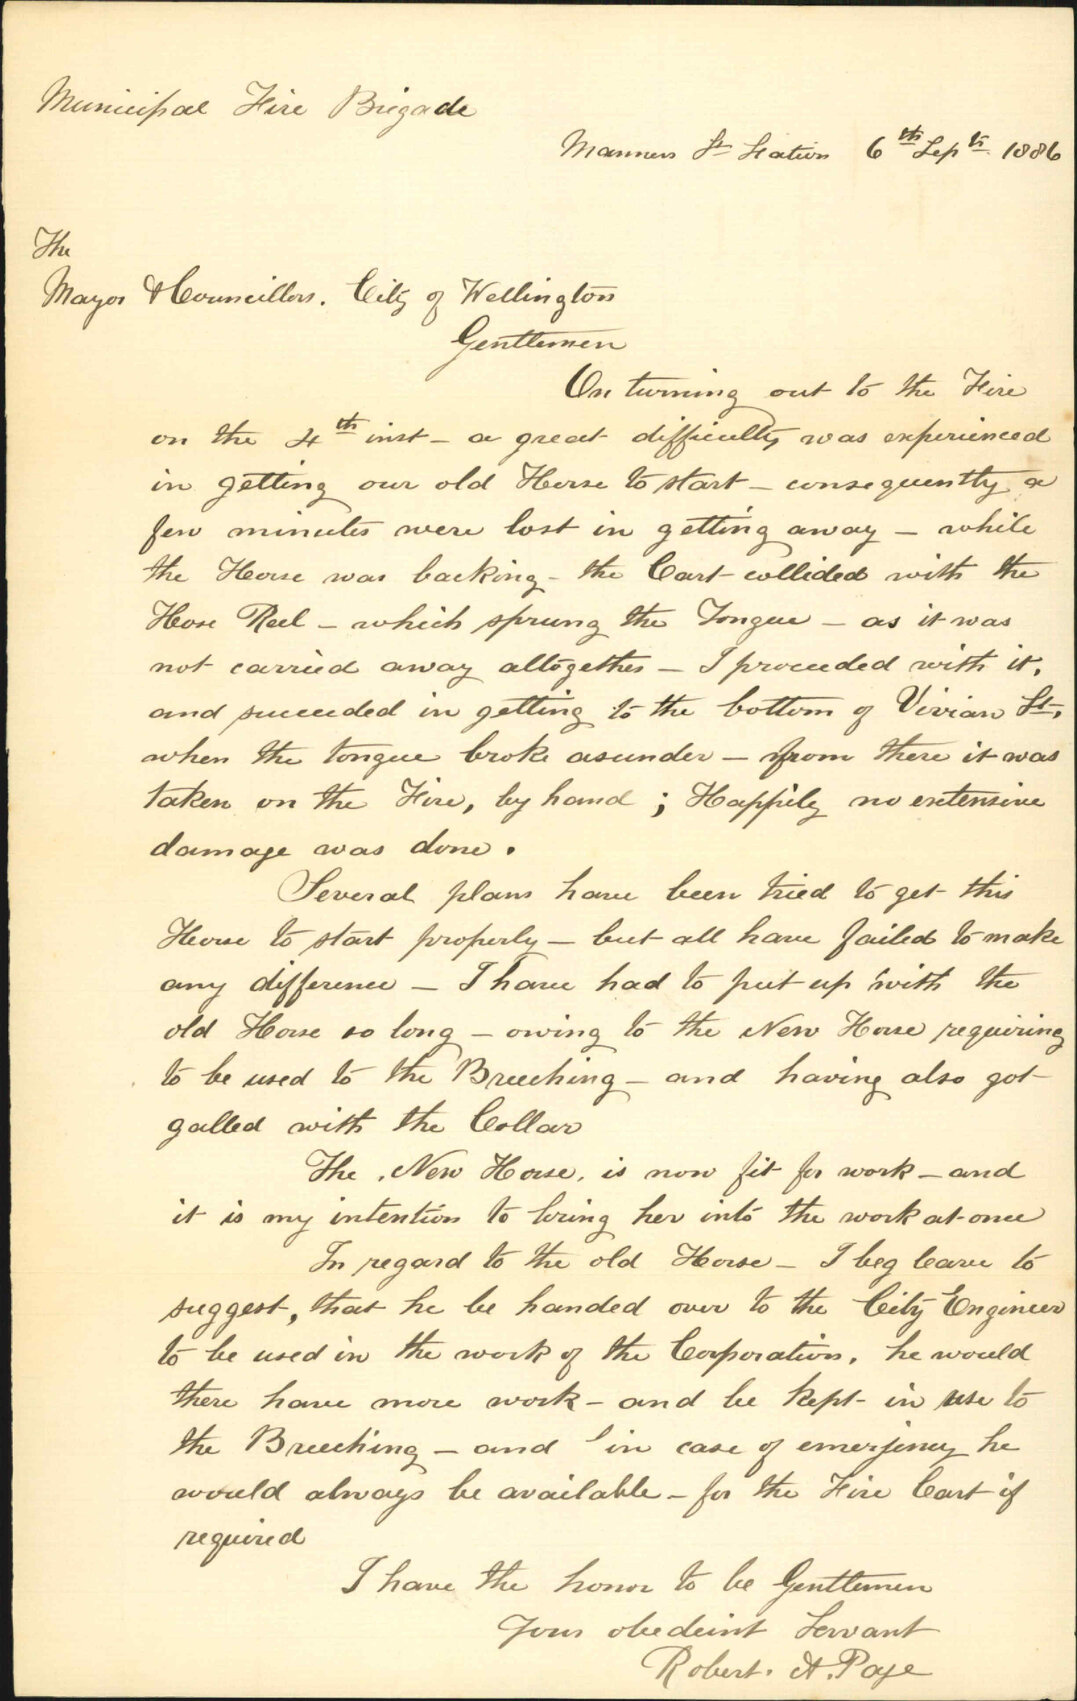 Municipal Fire Brigade
Manners St Station 6th Sept. 1886
The
Mayor & Councillors. City of Wellington
Gentlemen
On turning out to the Fire
on the 4th inst - a great difficulty was experienced
in getting our old Horse to start - consequently a
few minutes were lost in getting away - while
the Horse was backing - the Cart collided with the
Hose Reel - which sprung the Tongue - as it was
not carried away altogether - I proceeded with it,
and succeeded in getting to the bottom of Vivian St,
when the tongue broke asunder - from there it was
taken on the Fire, by hand ; Happily no extensive
damage was done.
Several plans have been tried to get this
Horse to start properly - but all have failed to make
any difference - I have had to put up with the
old Horse so long - owing to the New Horse requiring
to be used to the Breeching - and having also got
galled with the Collar
The New Horse is now fit for work - and
it is my intention to bring her into the work at once
In regard to the old Horse - I beg leave to
suggest, that he be handed over to the City Engineer
to be used in the work of the Corporation, he would
there have more work - and be kept in use to
the Breeching - and in case of emerjency he
would always be available - for the Fire Cart if
required
I have the honor to be Gentlemen
Your obedeint Servant
Robert. A. Page